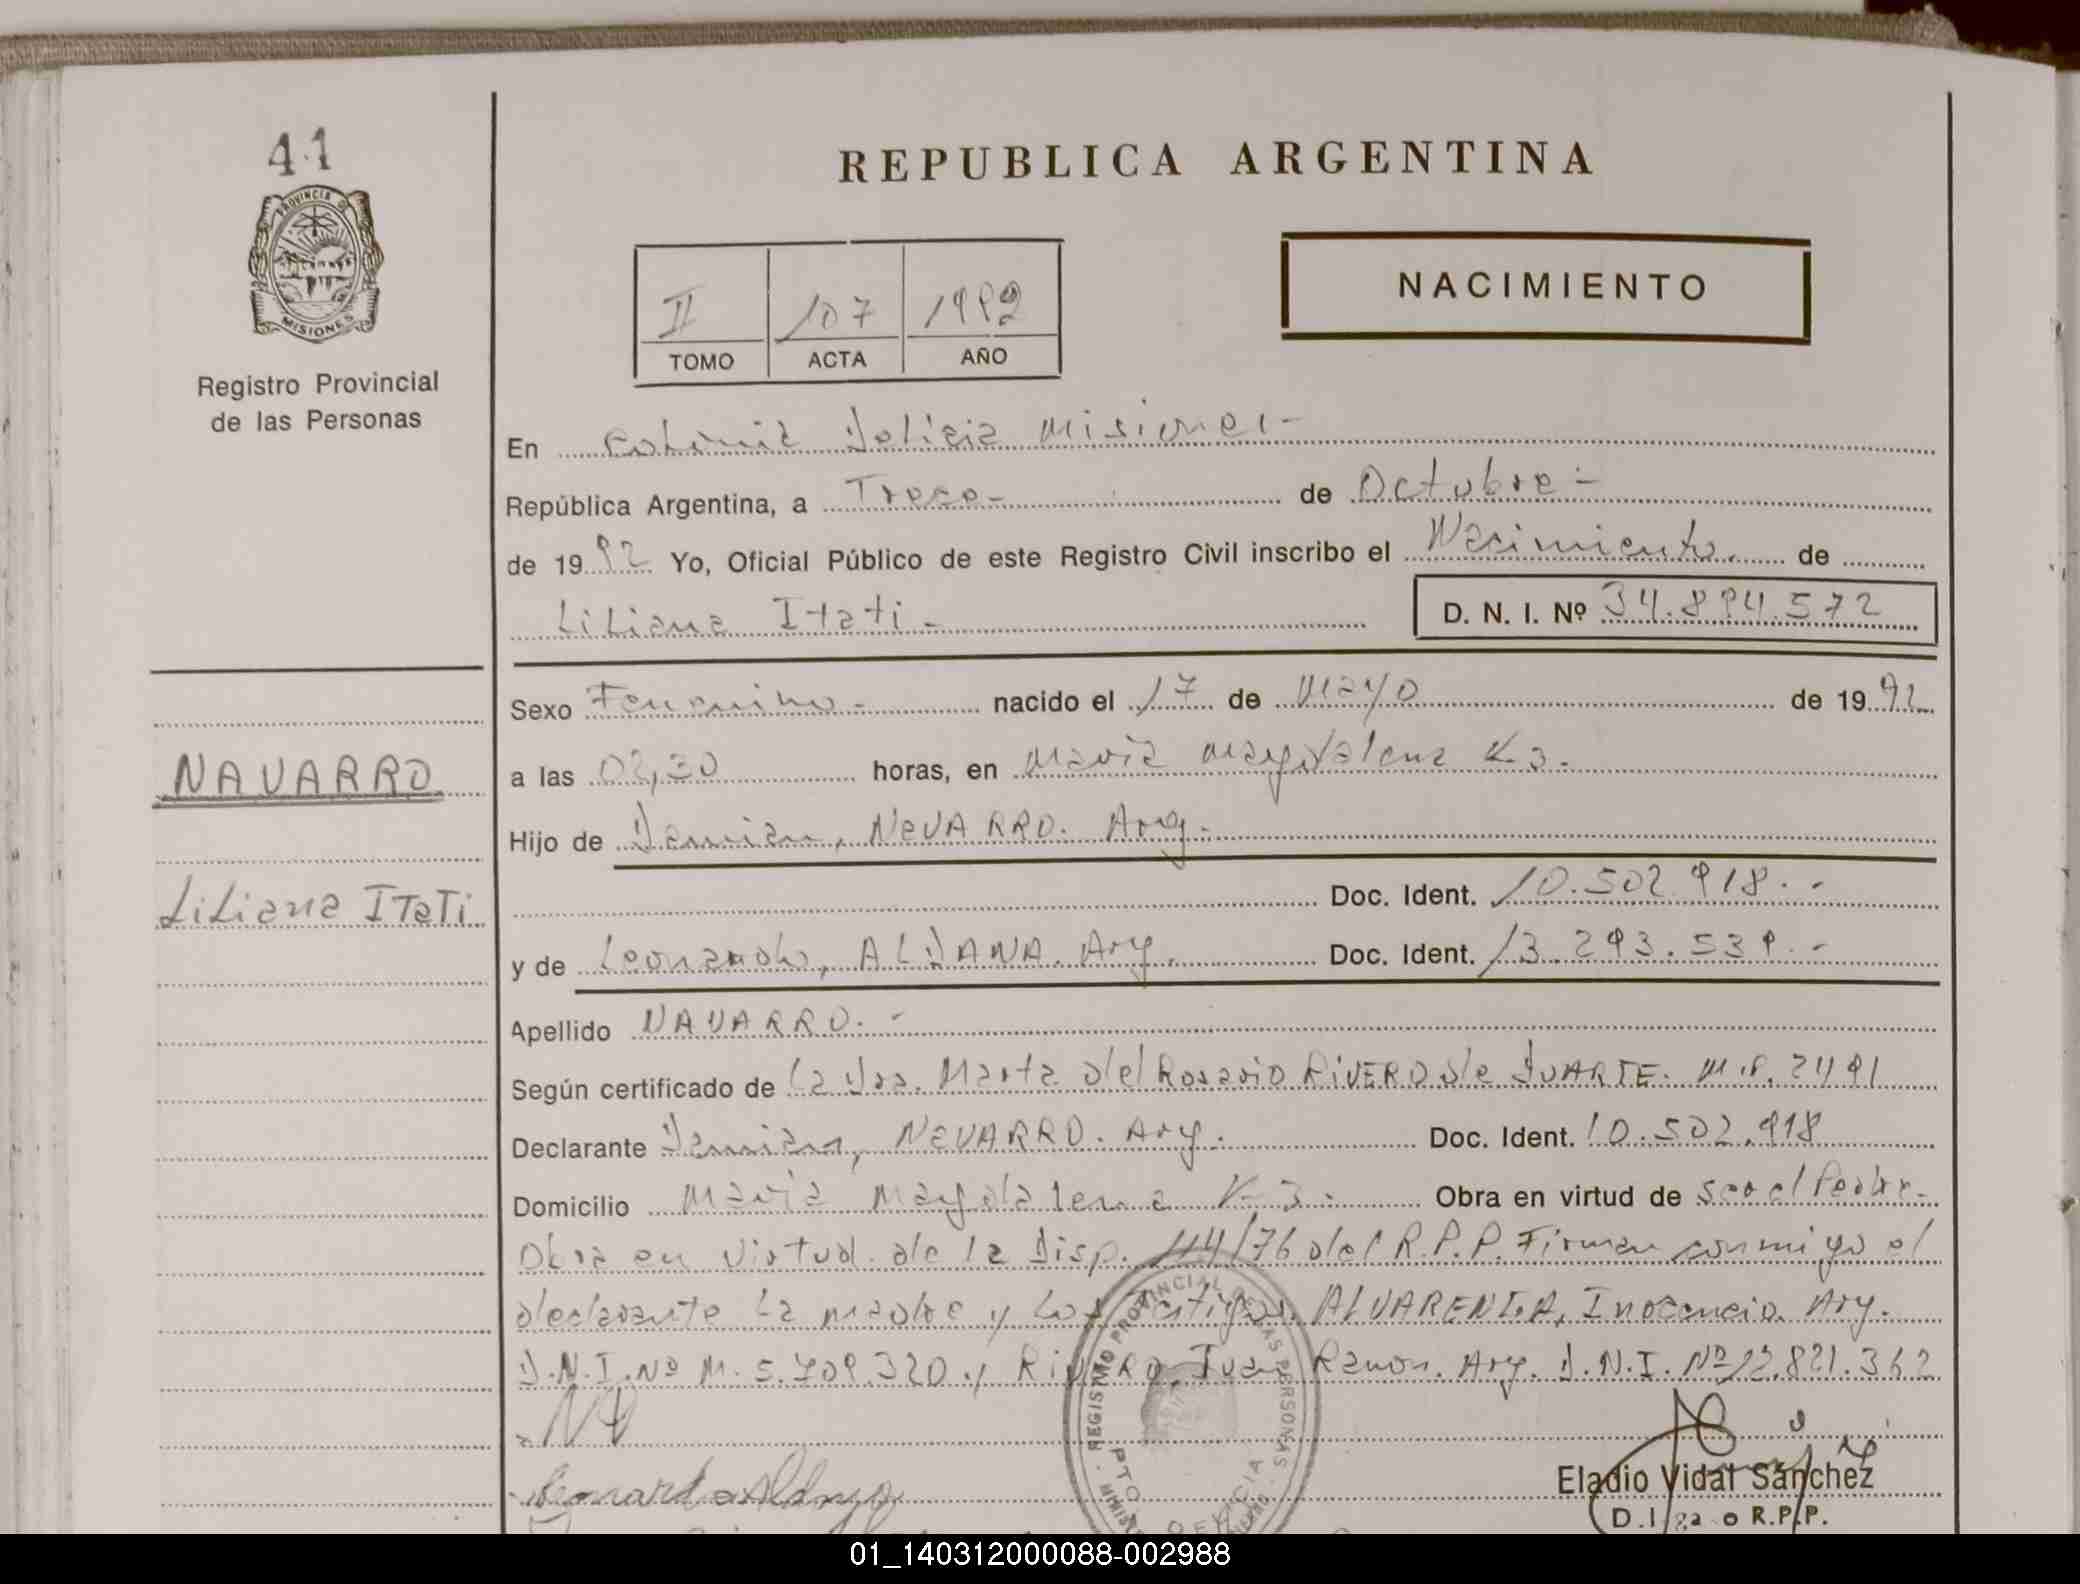 41
PROVINCIA DE
MISIONES
Registro Provincial
de las Personas
NAVARRO
Liliana Itati
REPUBLICA ARGENTINA
NACIMIENTO
II 107 1992
TOMO ACTA AÑO
En Colonia Delicia Misiones-
República Argentina, a Trece- de Octubre-
de 1992 Yo, Oficial Público de este Registro Civil inscribo el Nacimiento de
Liliana Itati- D. N. I. Nº 34.894.572
Sexo Femenino- nacido el 17 de Mayo de 1992
a las 02,30 horas, en Maria Magdalena K.3.
Hijo de Damian, NaVARRO. Arg.
Doc. Ident. 10.502.918.-
y de Leonarda, ALDANA. Arg. Doc. Ident. 13.293.539.-
Apellido NAVARRO.-
Según certificado de La Dra. Marta del Rosario RiVERO de DUARTE. M.P. 2491
Declarante Damian, NaVARRO. Arg. Doc. Ident. 10.502.918
Domicilio Maria Magdalena K-3. Obra en virtud de
Obra en virtud de la Disp. 114/76 del R.P.P. Firman conmigo el
declarante La madre y Los Testigos, ALVARENGA, Inocencio. Arg.
D.N.I. Nº M. 5.709.320 y RiVERO, Juan Ramon. Arg. D.N.I. Nº 12.821.362
Leonarda Aldana
REGISTRO PROVINCIAL DE LAS PERSONAS
PTO DELICIA
Eladio Vidal Sánchez
R.P.P.
01_140312000088-002988